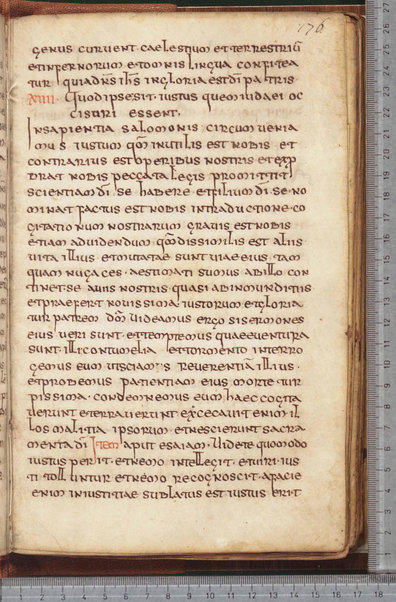 176
genus curvent caelestium et terrestriū
et infernorum et omnis lingua confitea
tur quia dns ihs in gloria est di patris
XIIII. Quod ipse sit iustus quem iudaei oc
cisuri essent.
In sapientia salomonis circumvenia
mus iustum qm inutilis est nobis et
contrarius est operibus nostris et exp
brat nobis peccata legis promittit
scientiam di se habere et filium di se no
minat factus est nobis in traductione co
gitationum nostrarum gravis est nobis
etiam ad videndum qm dissimilis est aliis
vita illius et mutatae sunt viae eius tam
quam nugaces aestimati sumus ab illo con
tinet se a viis nostris quasi ab inmunditiis
et praefert novissima iustorum et gloria
tur patrem dm videamus ergo si sermones
eius veri sunt et temptemus quae eventura
sunt illi contumelia et tormento interro
gemus eum ut sciamus reverentiā illius
et probemus patientiam eius morte tur
pissima condemnemus eum haec cogita
verunt et erraverunt excecavit enim il
los malitia ipsorum et nescierunt sacra
menta di Item aput esaiam. Videte quomodo
iustus perit et nemo intellegit et viri ius
ti tolluntur et nemo recognoscit a facie
enim iniustitiae sublatus est iustus erit